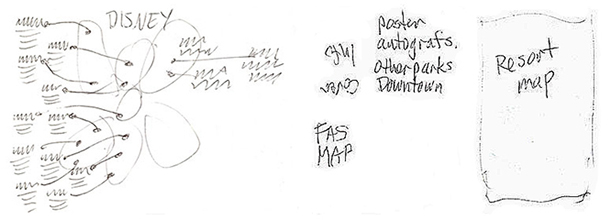 DISNEY
poster
autografs.
otherparks
Downtown
FAS
MAP
Resort
map